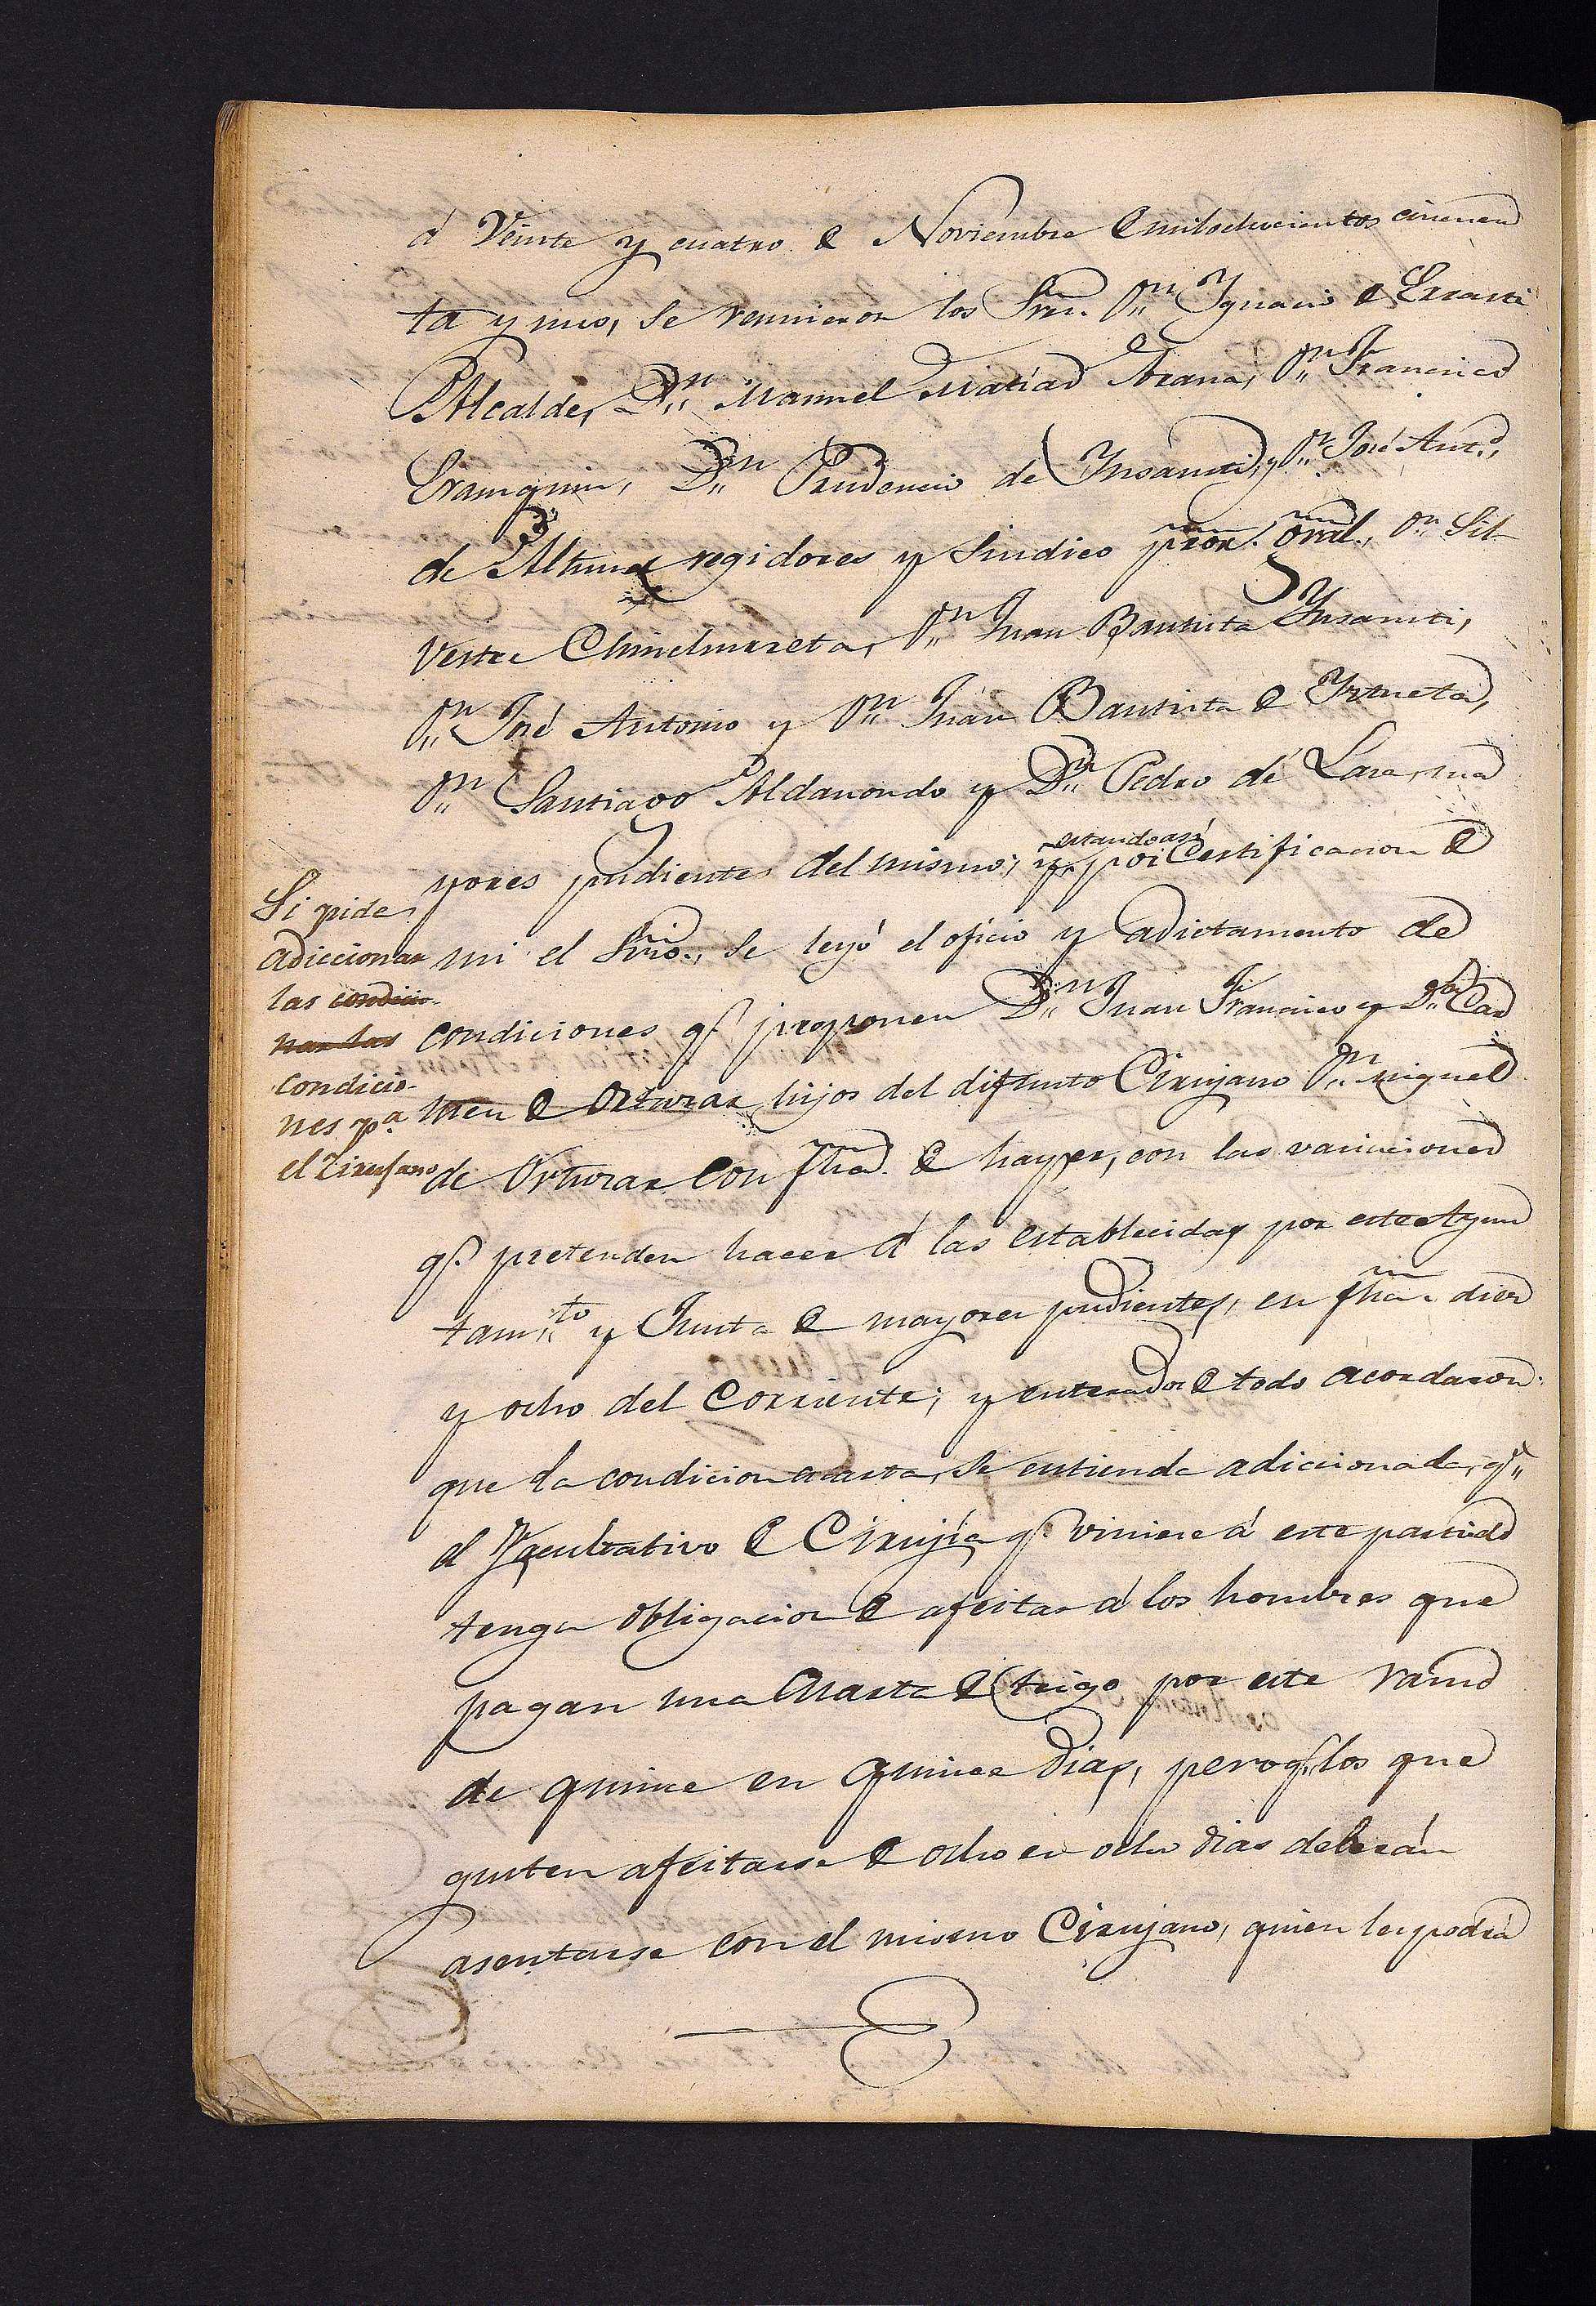 á Veinte y cuatro de Noviembre de milochocientos cincuen
ta y uno, se reunieron los Sres. Dn Ygnacio de Errasti
Alcalde, Dn Manuel Matias Arana, Dn Francisco
Eranquin, Dn Prudencio de Insausti, y Dn José Anto.
de Altuna regidores y Sindico pror. gral., Dn Sil
vestre Chinchurreta, Dn Juan Bautista Insausti,
Dn José Antonio y Dn Juan Bautista de Yrtueta,
Dn Santiago Aldanondo y Dn Pedro de Lasa, ma
yores pudientes del mismo; y estando asi por Certificacion de
mi el Srio., se leyó el oficio y adictamento de
condiciones q. proponen Dn Juan Francisco y Da Car
men de Orturar, hijos del difunto Cirujano Dn Miguel
de Orturar con fha. de hayer, con las variaciones
q. pretenden hacer á las establecidas por este Ayun
tam.to y Junta de mayores pudientes, en fha. diez
y ocho del Corriente; y enterados de todo acordaron:
que la condicion cuarta, se entienda adicionada, q.
el Facultativo de Cirujía q. viniese á este partido
tenga obligacion de afeitar á los hombres que
pagan una Cuarta de trigo por este ramo
de quince en quince dias, pero q. los que
gusten afeitarse de ocho en ocho dias deberán
asentarse con el mismo Cirujano, quien les podrá
Si pide
adiccionar
las condicio
nar las
condicio-
nes pa.
el Zirujano